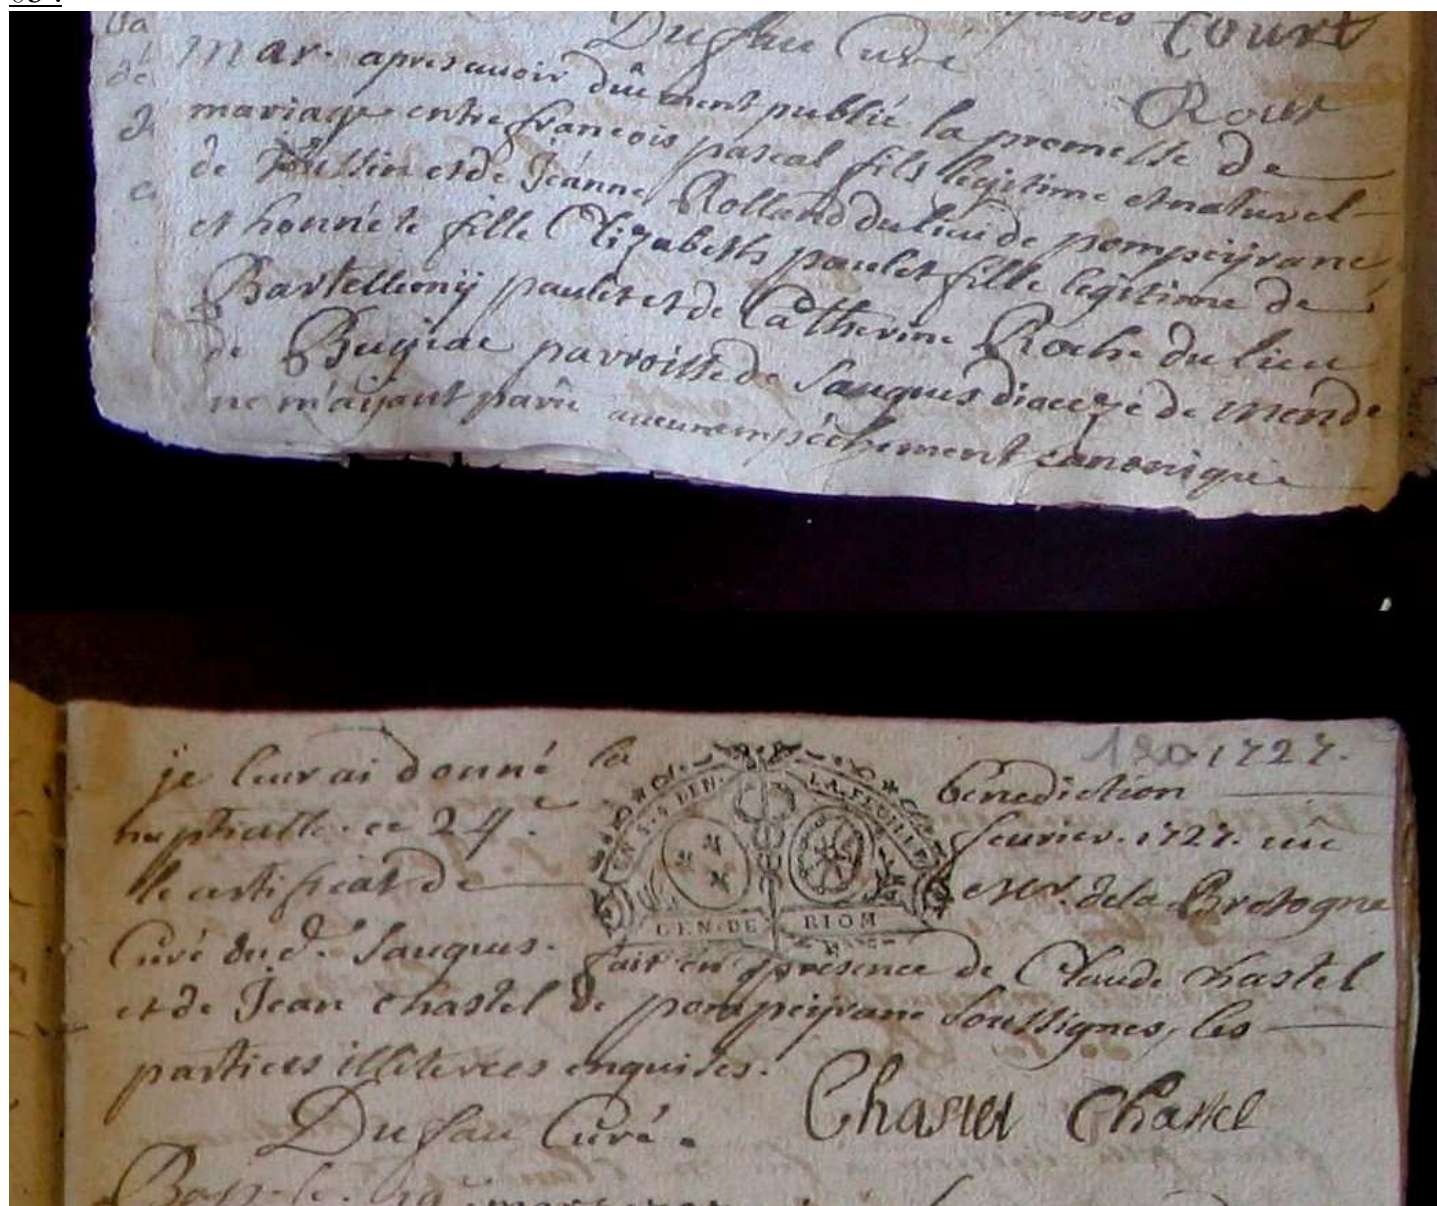 03 :
Court
Dufau Curé
Roux
Mar. apres avoir dûement publié la promesse de
mariage entre françois pascal fils legitime et naturel
de et de Jeanne Rolland du lieu de pompeyranc
et honnéte fille Elizabeth paulet fille legitime de
Bartellemÿ paulet et de Catherine Roche du lieu
de parroisse de Saugues dioceze de mende
ne m'aÿant parû aucun empéchement canonique
120 1727.
je leur ai donné la bénediction
nuptialle. ce 24. feuvrier. 1727. vu
le certificat de Mr. de la Bretogne
GEN. DE RIOM
Curé dud. Saugues. fait en présence de Claude chastel
et de Jean chastel de pompeyranc soussignes, les
parties illiterees enquises.
Chastel Chastel
Dufau Curé.